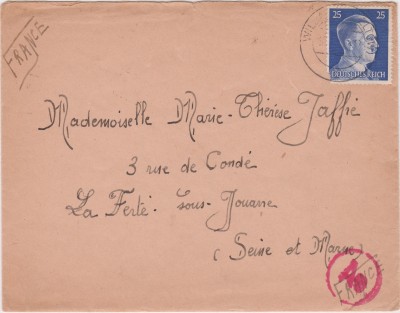 FRANCE
25 25
DEUTSCHES REICH
Mademoiselle Marie-Thérèse Jaffré
3 rue de Condé
La Ferté-sous-Jouarre
(Seine et Marne)
FRANCE